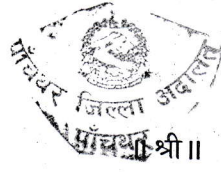 पाँचथर जिल्ला अदालत
पाँचथर
॥ श्री ॥